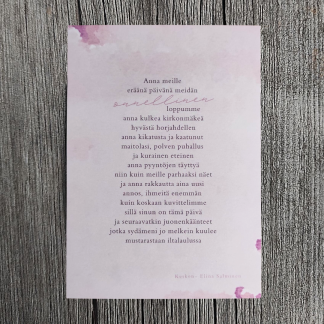 Anna meille
eräänä päivänä meidän
onnellinen
loppumme
anna kulkea kirkonmäkeä
hyvästä horjahdellen
anna kikatusta ja kaatunut
maitolasi, polven puhallus
ja kurainen eteinen
anna pyyntöjen täyttyä
niin kuin meille parhaaksi näet
ja anna rakkautta aina uusi
annos, ihmeitä enemmän
kuin koskaan kuvittelimme
sillä sinun on tämä päivä
ja seuraavatkin juonenkäänteet
jotka sydämeni jo melkein kuulee
mustarastaan iltalaulussa